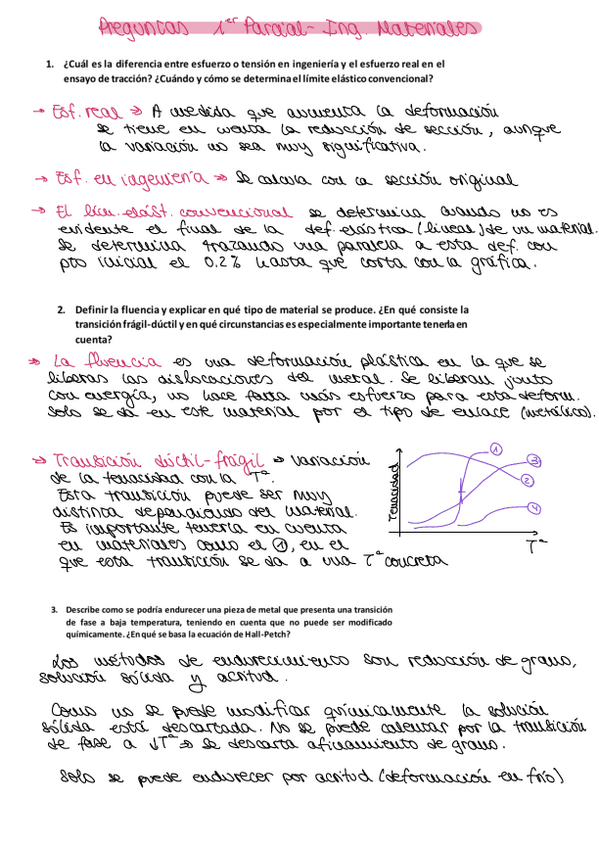 Preguntas 1er Parcial - Ing. Materiales
1. ¿Cuál es la diferencia entre esfuerzo o tensión en ingeniería y el esfuerzo real en el
ensayo de tracción? ¿Cuándo y cómo se determina el límite elástico convencional?
→ Esf. real ⇒ A medida que aumenta la deformación
se tiene en cuenta la reducción de sección, aunque
la variación no sea muy significativa.
→ Esf. en ingeniería ⇒ Se calcula con la sección original
→ El lím. elást. convencional se determina cuando no es
evidente el final de la def. elástica (lineal) de un material.
Se determina trazando una paralela a esta def. con
pto inicial el 0.2% hasta que corta con la gráfica.
2. Definir la fluencia y explicar en qué tipo de material se produce. ¿En qué consiste la
transición frágil-dúctil y en qué circunstancias es especialmente importante tenerla en
cuenta?
→ La fluencia es una deformación plástica en la que se
liberas las dislocaciones del metal. Se liberan junto
con energía, no hace falta más esfuerzo para esta deform.
Solo se da en este material por el tipo de enlace (metálico).
→ Transición dúctil-frágil ⇒ variación
de la tenacidad con la Tª.
Esta transición puede ser muy
distinta dependiendo del material.
Es importante tenerla en cuenta
en materiales como el ①, en el
que esta transición se da a una Tª concreta
Tenacidad
①
③
②
④
Tª
3. Describe como se podría endurecer una pieza de metal que presenta una transición
de fase a baja temperatura, teniendo en cuenta que no puede ser modificado
químicamente. ¿En qué se basa la ecuación de Hall-Petch?
Los métodos de endurecimiento son reducción de grano,
solución sólida y acritud.
Como no se puede modificar químicamente la solución
sólida está descartada. No se puede calentar por la transición
de fase a ↓Tª ⇒ se descarta afinamiento de grano.
Solo se puede endurecer por acritud (deformación en frío)